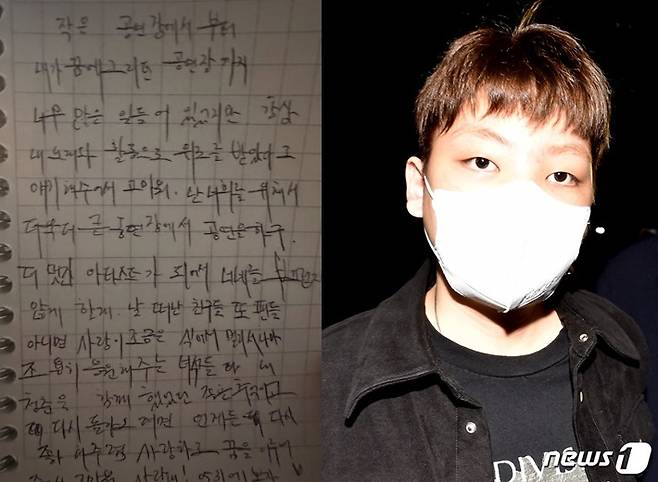 작은 공연장에서 부터
내가 꿈에 그리던 공연장 까지
너무 많은 일들이 있었지만 항상
내 노래와 활동으로 위로를 받았다고
얘기해줘서 고마워. 난 너희를 위해서
더욱더 큰 공연장에서 공연을 하구,
더 멋진 아티스트가 되어서 너네들
않게 할게. 날 떠난 친구들 또 팬들
아니면 사랑이 조금은 식어서 멀리서나마
응원해주는 녀석들 다 내
청춘을 함께 했었던
다시 돌아오려면 언제든 다시
사랑하고 꿈을
DIV
news1